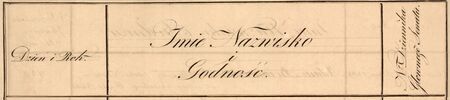 Dzien i Rok
Imie Nazwisko
i
Godność.
N. Dziennika
Głownego Senatu.